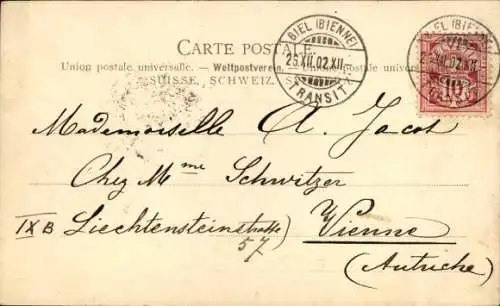 CARTE POSTALE.
Union postale universelle. — Weltpostverein. — Unione postale universale
SUISSE. SCHWEIZ.
BIEL (BIENNE)
25.XII.02.XII.
TRANSIT
BIEL (BIENNE)
XII.02.XII.
10
Mademoiselle A. Jacot
Chez Mme Schwitzer
IX B Liechtensteinstraße)
57
Vienne
(Autriche)